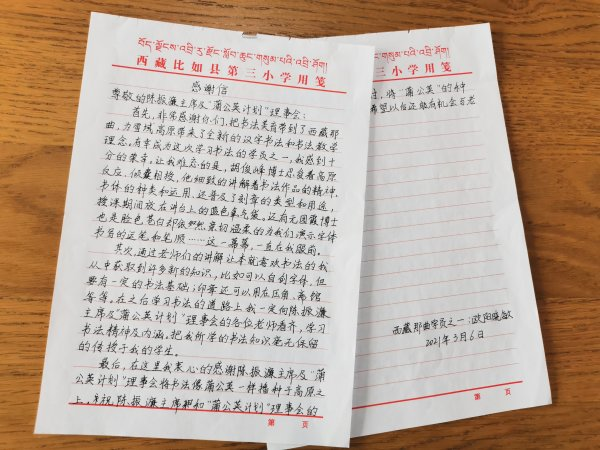 བོད་ལྗོངས་འབྲི་རུ་རྫོང་སློབ་ཆུང་གསུམ་པའི་འབྲི་ཤོག།
西藏比如县第三小学用笺
感谢信
尊敬的陈振濂主席及“蒲公英计划”理事会：
首先，非常感谢你们，把书法美育带到了西藏那
曲，为雪域高原带来了全新的汉字书法和书法教学
理念，有幸成为这次学习书法的学员之一，我感到十
分的荣幸，让我难忘的是，胡俊峰博士忍受着高原
反应、倾囊相授，他细致的讲解着书法作品的精神，
书体的种类和运用、还普及了刻章的类型和用途，
授课期间放在讲台上的蓝色氧气袋，还有元国霞博士
也是脸色苍白却依然亲切温柔的为我们演示字体
书写的运笔和笔顺……这一幕幕，一直在我眼前。
其次，通过老师们的讲解让本就喜欢书法的我
从中获取到许多新的知识，比如可以自创字体，但
要有一定的书法基础；印章还可以用在压角、离馆
等等，在之后学习书法的道路上我一定向陈振濂
主席及“蒲公英计划”理事会的各位老师看齐，学习
书法精神及内涵，把我所学的书法知识毫无保留
的传授于我的学生。
最后，在这里我衷心的感谢陈振濂主席及“蒲
公英计划”理事会将书法像蒲公英一样播种于高原之
上，并祝陈振濂主席和“蒲公英计划”理事会的
第 页
གསུམ་པའི་འབྲི་ཤོག།
三小学用笺
将“蒲公英”的种
希望以后还能有机会与老
西藏那曲学员之一：欧阳
2021年3月6日
第 页